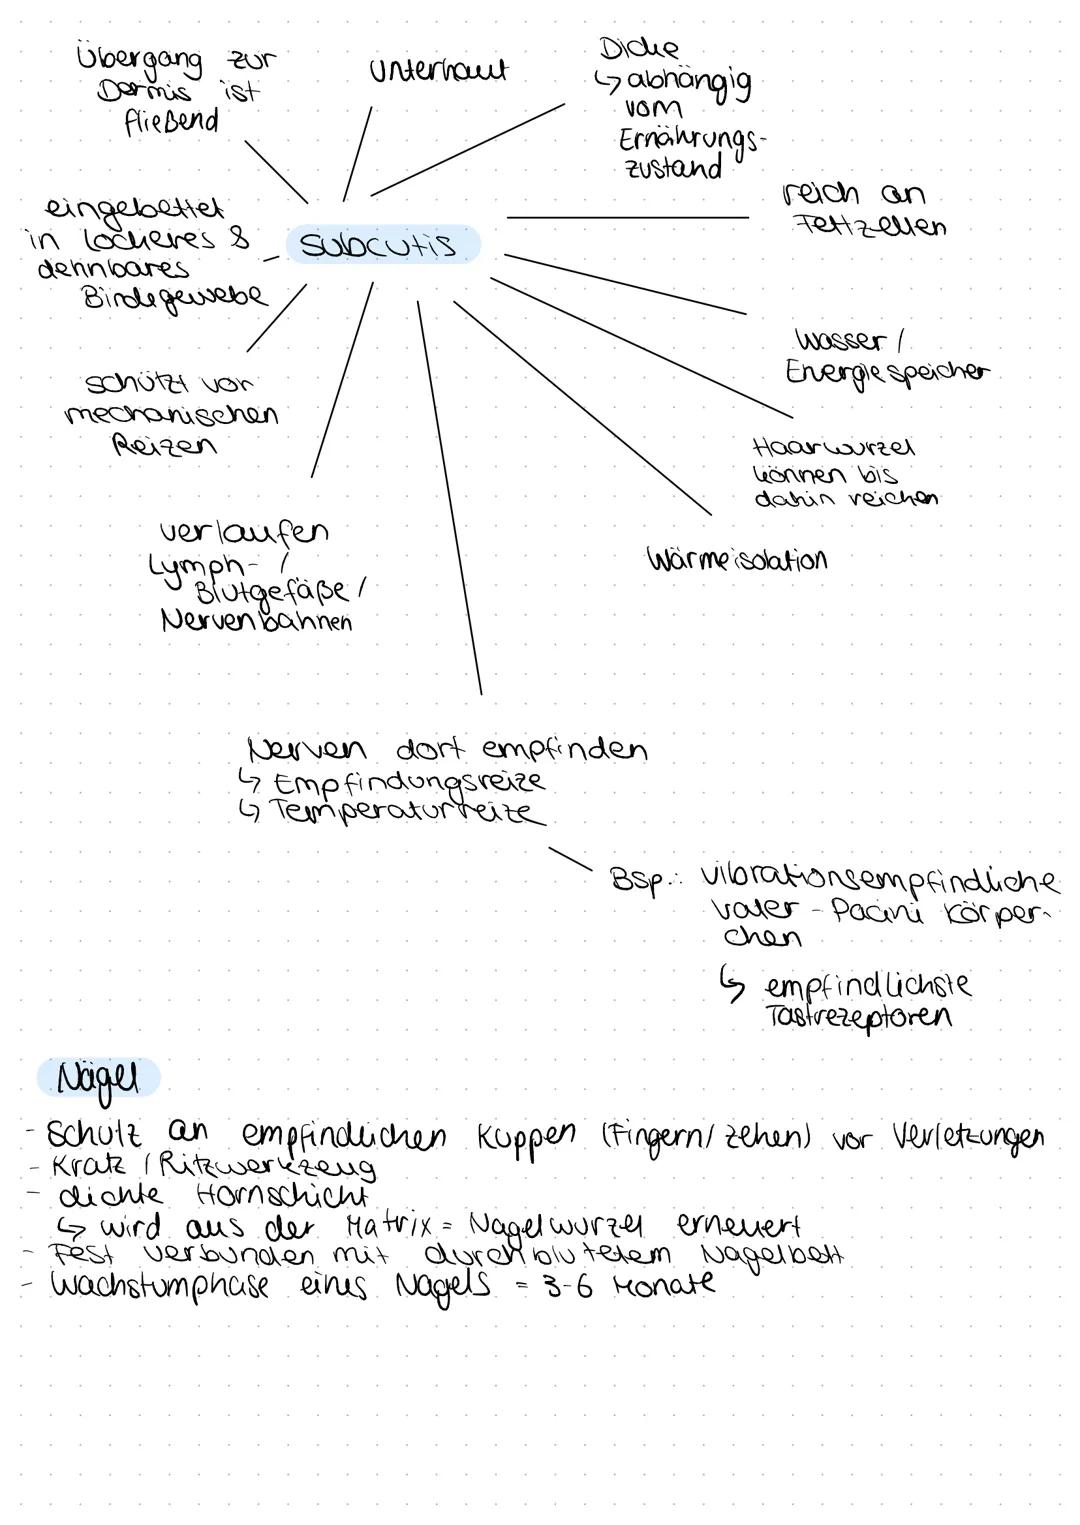 Übergang zur
Dermis ist
fließend
Unterhaut
Dicke
↳ abhängig
vom
Ernährungs-
zustand
reich an
Fettzellen
eingebettet
in lockeres &
dehnbares
Bindegewebe
Subcutis
Wasser /
Energiespeicher
schützt vor
mechanischen
Reizen
Haarwurzel
können bis
dahin reichen
Wärmeisolation
verlaufen
Lymph- /
Blutgefäße /
Nervenbahnen
Nerven dort empfinden
↳ Empfindungsreize
↳ Temperaturreize
Bsp.: vibrationsempfindliche
Vater - Pacini Körper-
chen
↳ empfindlichste
Tastrezeptoren
Nägel
- Schutz an empfindlichen Kuppen (Fingern/Zehen) vor Verletzungen
- Kratz / Ritzwerkzeug
- dichte Hornschicht
↳ wird aus der Matrix = Nagelwurzel erneuert
- Fest verbunden mit durchblutetem Nagelbett
- Wachstumphase eines Nagels = 3-6 Monate